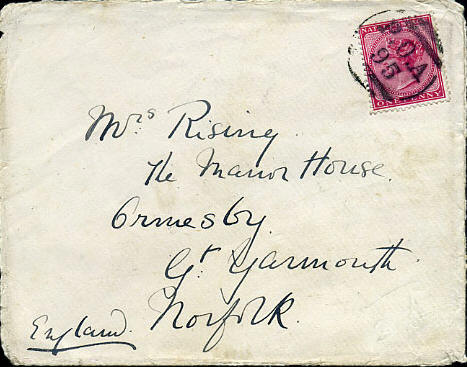 NATAL
ONE PENNY
95
Mrs Rising
The Manor House.
Ormesby
Gt. Yarmouth
Norfolk.
England.